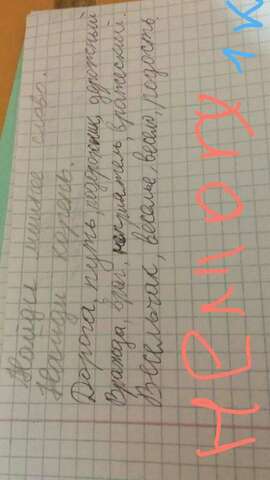 Найди лишнее слово.
Найди корень.
Дорога, путь, подорожник, дорожный
Вражда, враг, неприятель, вражеский.
Весельчак, веселье, весело, радость
1 К